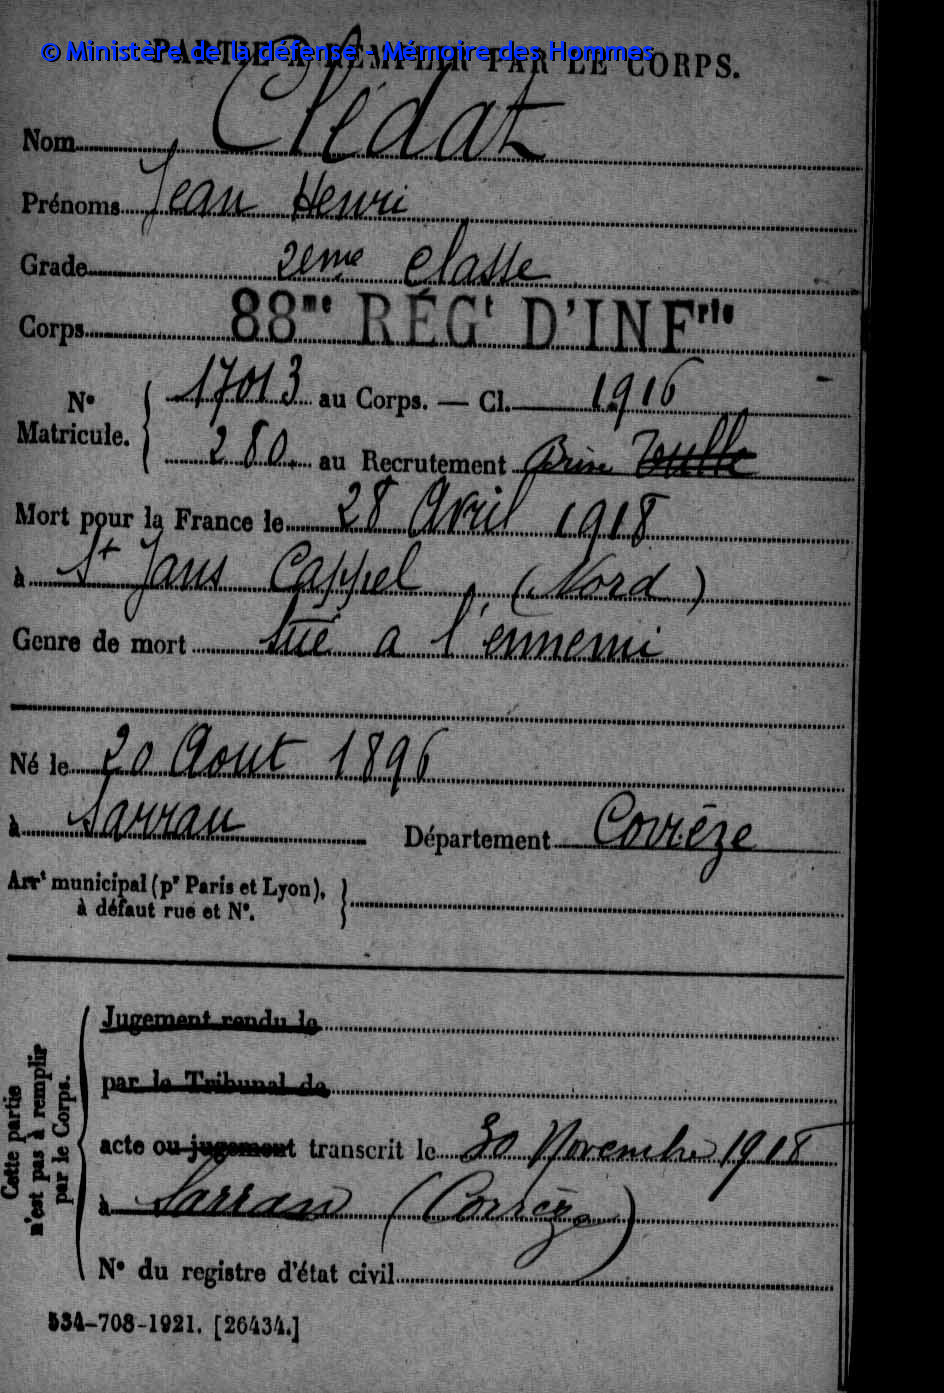 © Ministère de la défense - Mémoire des Hommes
PARTIE À REMPLIR PAR LE CORPS.
Nom Clédat
Prénoms Jean Henri
Grade 2eme classe
Corps 88me RÉGt D'INFrie
No Matricule. { 17013 au Corps. — Cl. 1916
280. au Recrutement Brive Tulle
Mort pour la France le 28 Avril 1918
à St Jans Cappel, (Nord)
Genre de mort tué a l'ennemi
Né le 20 Aout 1896
à Sarran Département Corrèze
Arrt municipal (pr Paris et Lyon),
à défaut rue et No. }
Cette partie
n'est pas à remplir
par le Corps.
Jugement rendu le
par le Tribunal de
acte ou jugement transcrit le 30 Novembre 1918
à Sarran (Corrèze)
No du registre d'état civil
534-708-1921. [26434.]